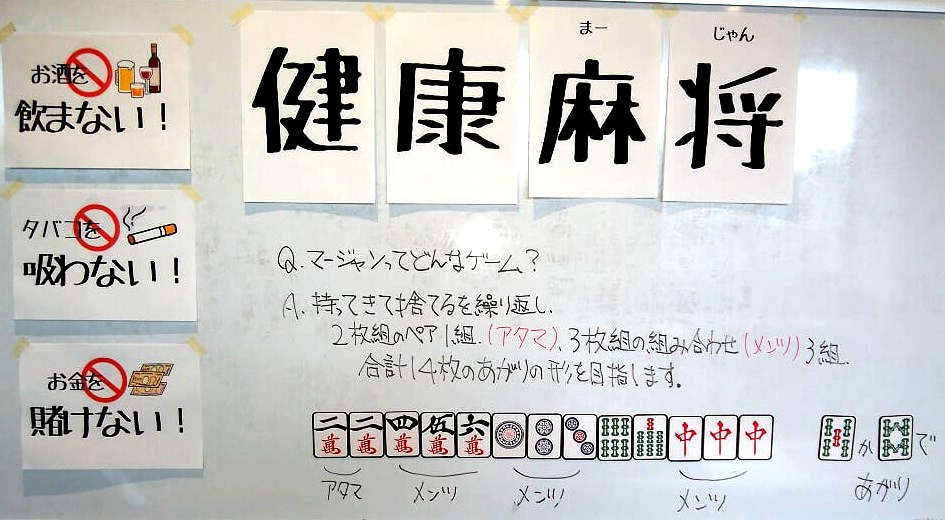 お酒を
飲まない！
タバコを
吸わない！
お金を
賭けない！
まー じゃん
健康麻将
Q.マージャンってどんなゲーム？
A.持ってきて捨てるを繰り返し、
2枚組のペア1組(アタマ)、3枚組の組み合わせ(メンツ)3組、
合計14枚のあがりの形を目指します。
二萬 二萬 四萬 伍萬 六萬 中 中 中
か で
アタマ メンツ メンツ メンツ あがり